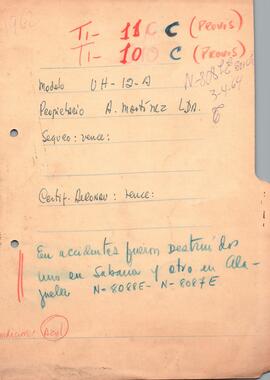 TI- 110 C (PROVIS)
TI- 1019 C (PROVIS)
3-4-64
Modelo UH-12-A
Propietario A. Martínez LDA.
Seguro: vence:
Certif. Aeronav: vence:
En accidentes fueron destruidos
uno en Sabana y otro en Ala-
juela N-8088E- N-8087E
Azul